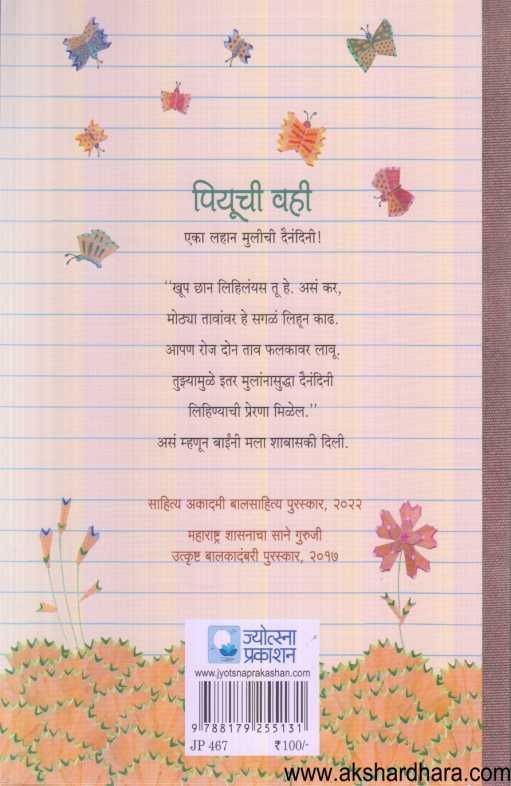 पियूची वही
एका लहान मुलीची दैनंदिनी!
"खूप छान लिहिलंयस तू हे. असं कर,
मोठ्या तावांवर हे सगळं लिहून काढ.
आपण रोज दोन ताव फलकावर लावू.
तुझ्यामुळे इतर मुलांनासुद्धा दैनंदिनी
लिहिण्याची प्रेरणा मिळेल."
असं म्हणून बाईंनी मला शाबासकी दिली.
साहित्य अकादमी बालसाहित्य पुरस्कार, २०२२
महाराष्ट्र शासनाचा साने गुरुजी
उत्कृष्ट बालकादंबरी पुरस्कार, २०१७
ज्योत्स्ना
प्रकाशन
www.jyotsnaprakashan.com
9 788179 255131
JP 467 ₹100/-
www.akshardhara.com